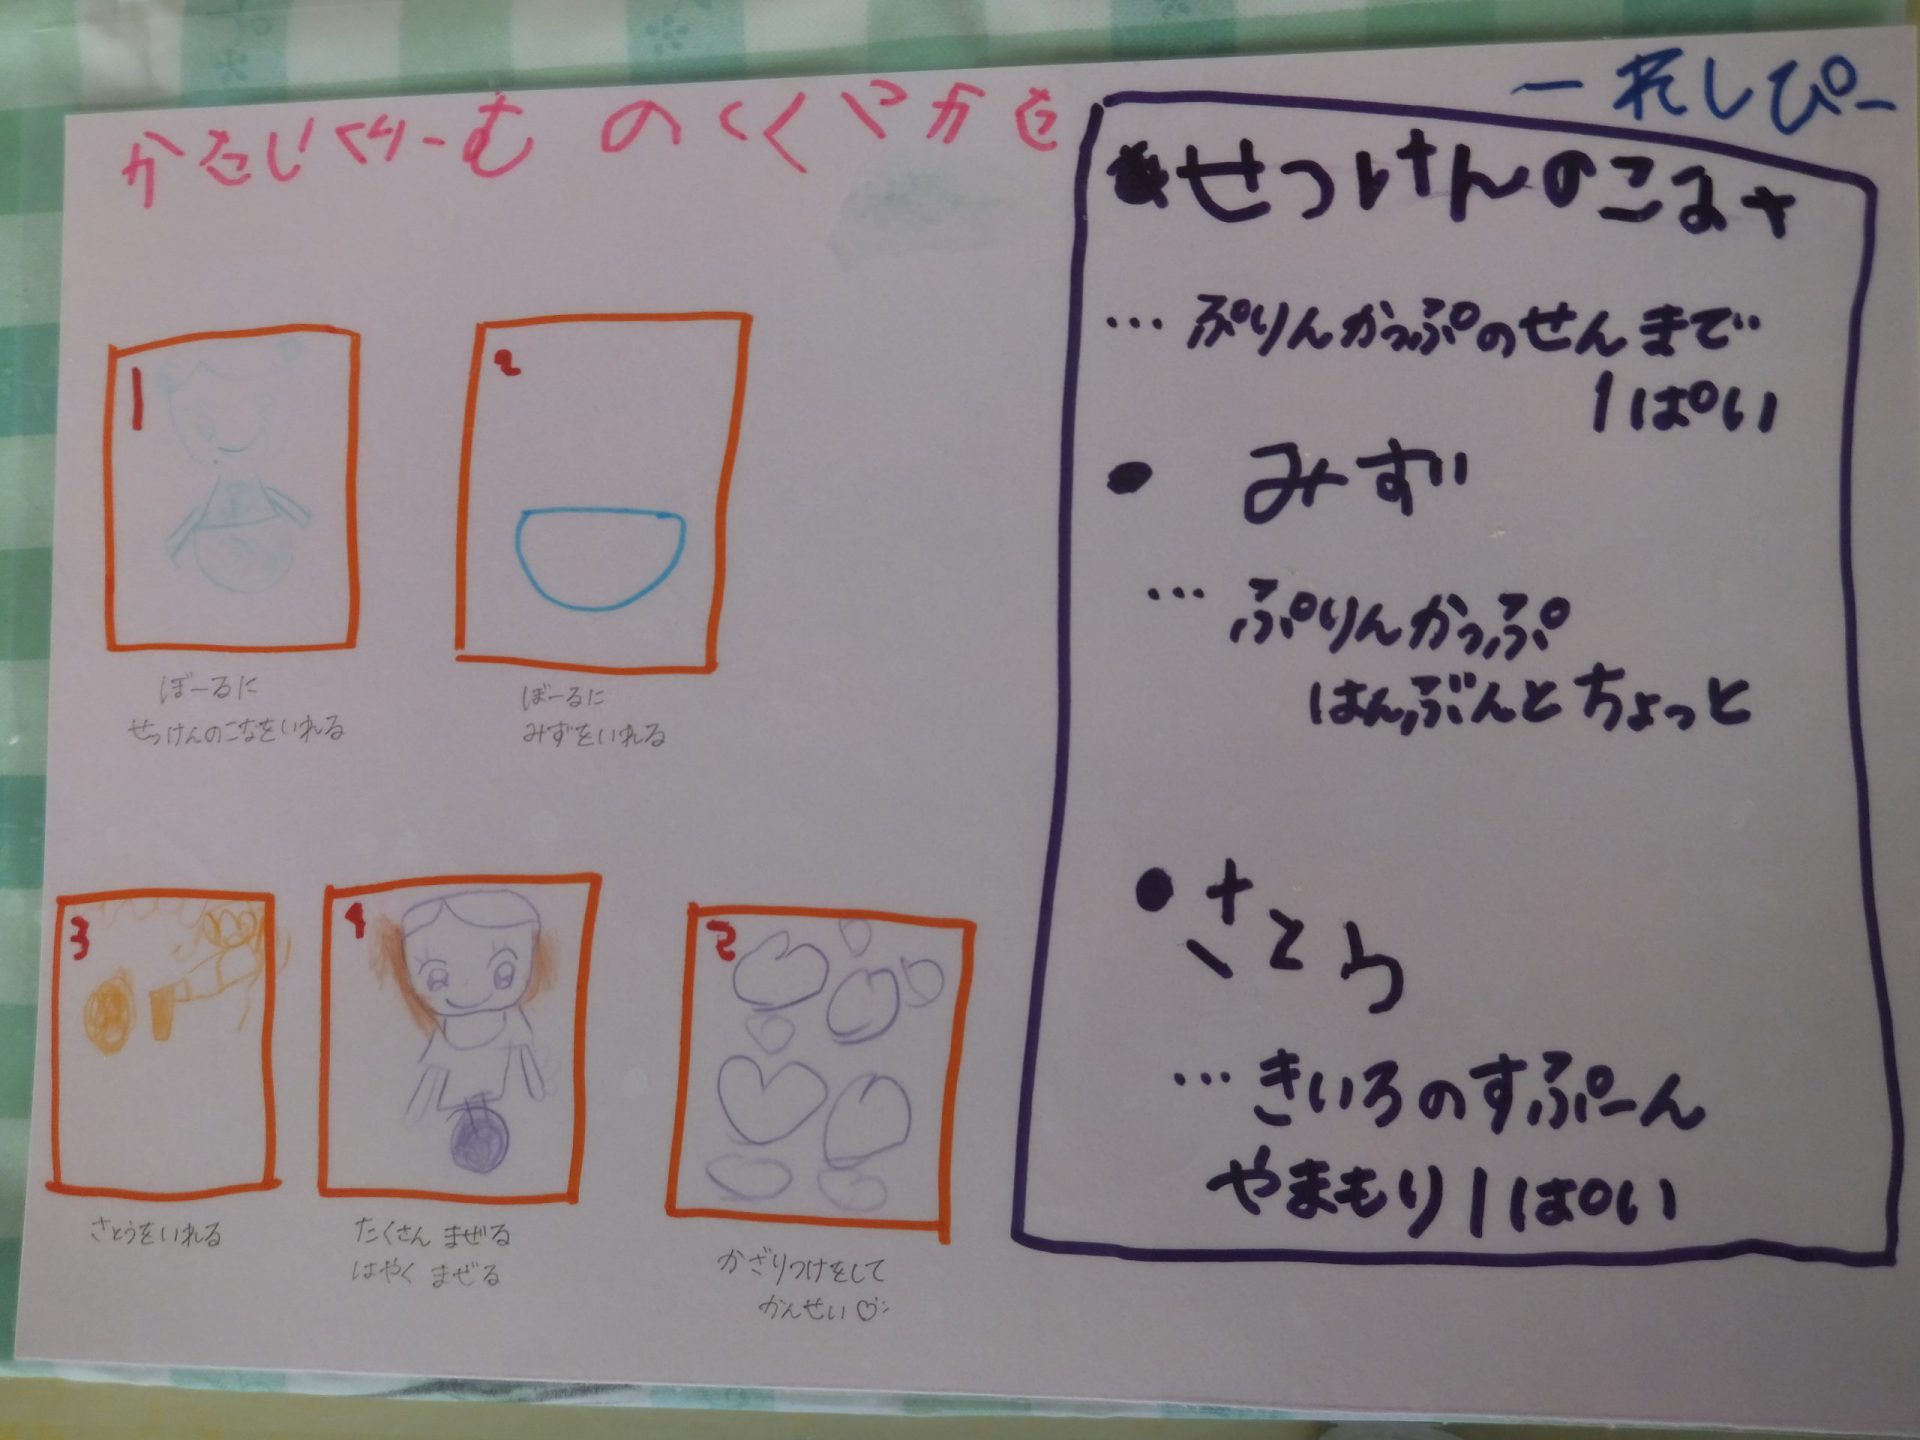 ーれしぴー
せっけんのこな
… ぷりんかっぷのせんまで
1ぱい
● みず
… ぷりんかっぷ
はんぶんとちょっと
● さとう
… きいろのすぷーん
やまもり1ぱい
1
ぼーるに
せっけんのこなをいれる
2
ぼーるに
みずをいれる
3
さとうをいれる
4
たくさん まぜる
はやく まぜる
かざりつけをして
かんせい♡